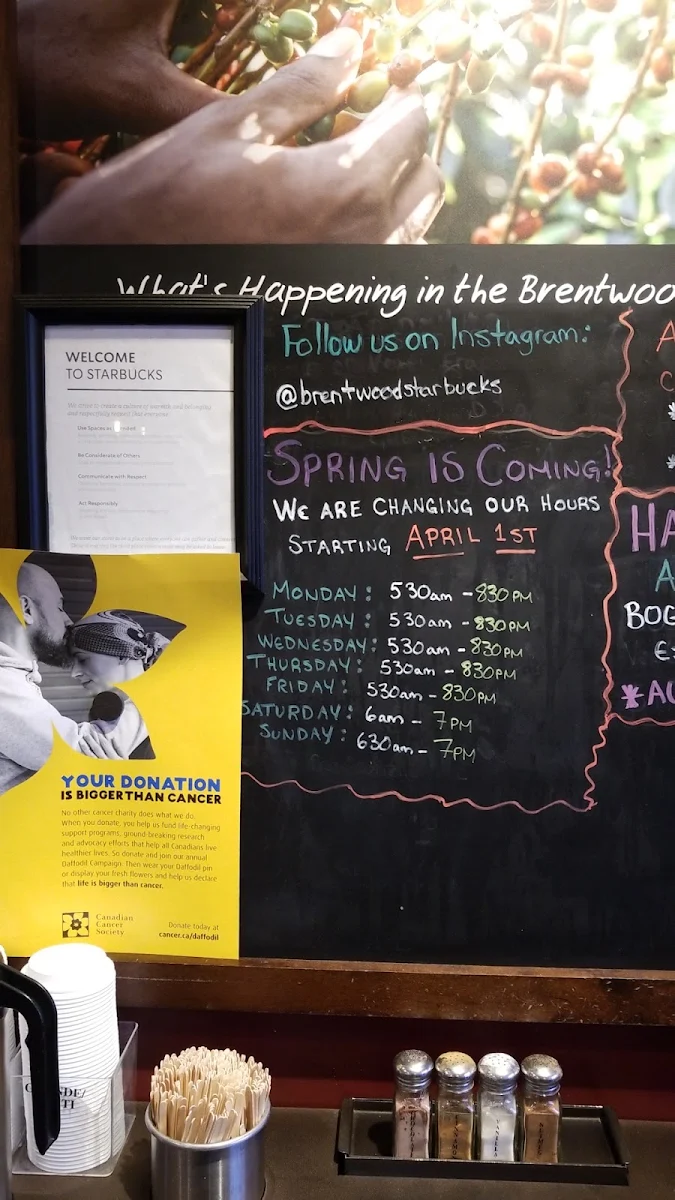 What's Happening in the Brentwoo
Follow us on Instagram:
@brentwoodstarbucks
SPRING IS COMING!
WE ARE CHANGING OUR HOURS
STARTING APRIL 1ST
MONDAY: 530am - 830PM
TUESDAY: 530am - 830PM
WEDNESDAY: 530am - 830PM
THURSDAY: 530am - 830PM
FRIDAY: 530am - 830PM
SATURDAY: 6am - 7PM
SUNDAY: 630am - 7PM
A
C
HA
A
BOG
*AU
WELCOME
TO STARBUCKS
Use Spaces as Intended
Be Considerate of Others
Communicate with Respect
Act Responsibly
YOUR DONATION
IS BIGGER THAN CANCER
No other cancer charity does what we do.
When you donate, you help us fund life-changing
support programs, ground-breaking research
and advocacy efforts that help all Canadians live
healthier lives. So donate and join our annual
Daffodil Campaign. Then wear your Daffodil pin
or display your fresh flowers and help us declare
that life is bigger than cancer.
Canadian
Cancer
Society
Donate today at
cancer.ca/daffodil
VANILLA